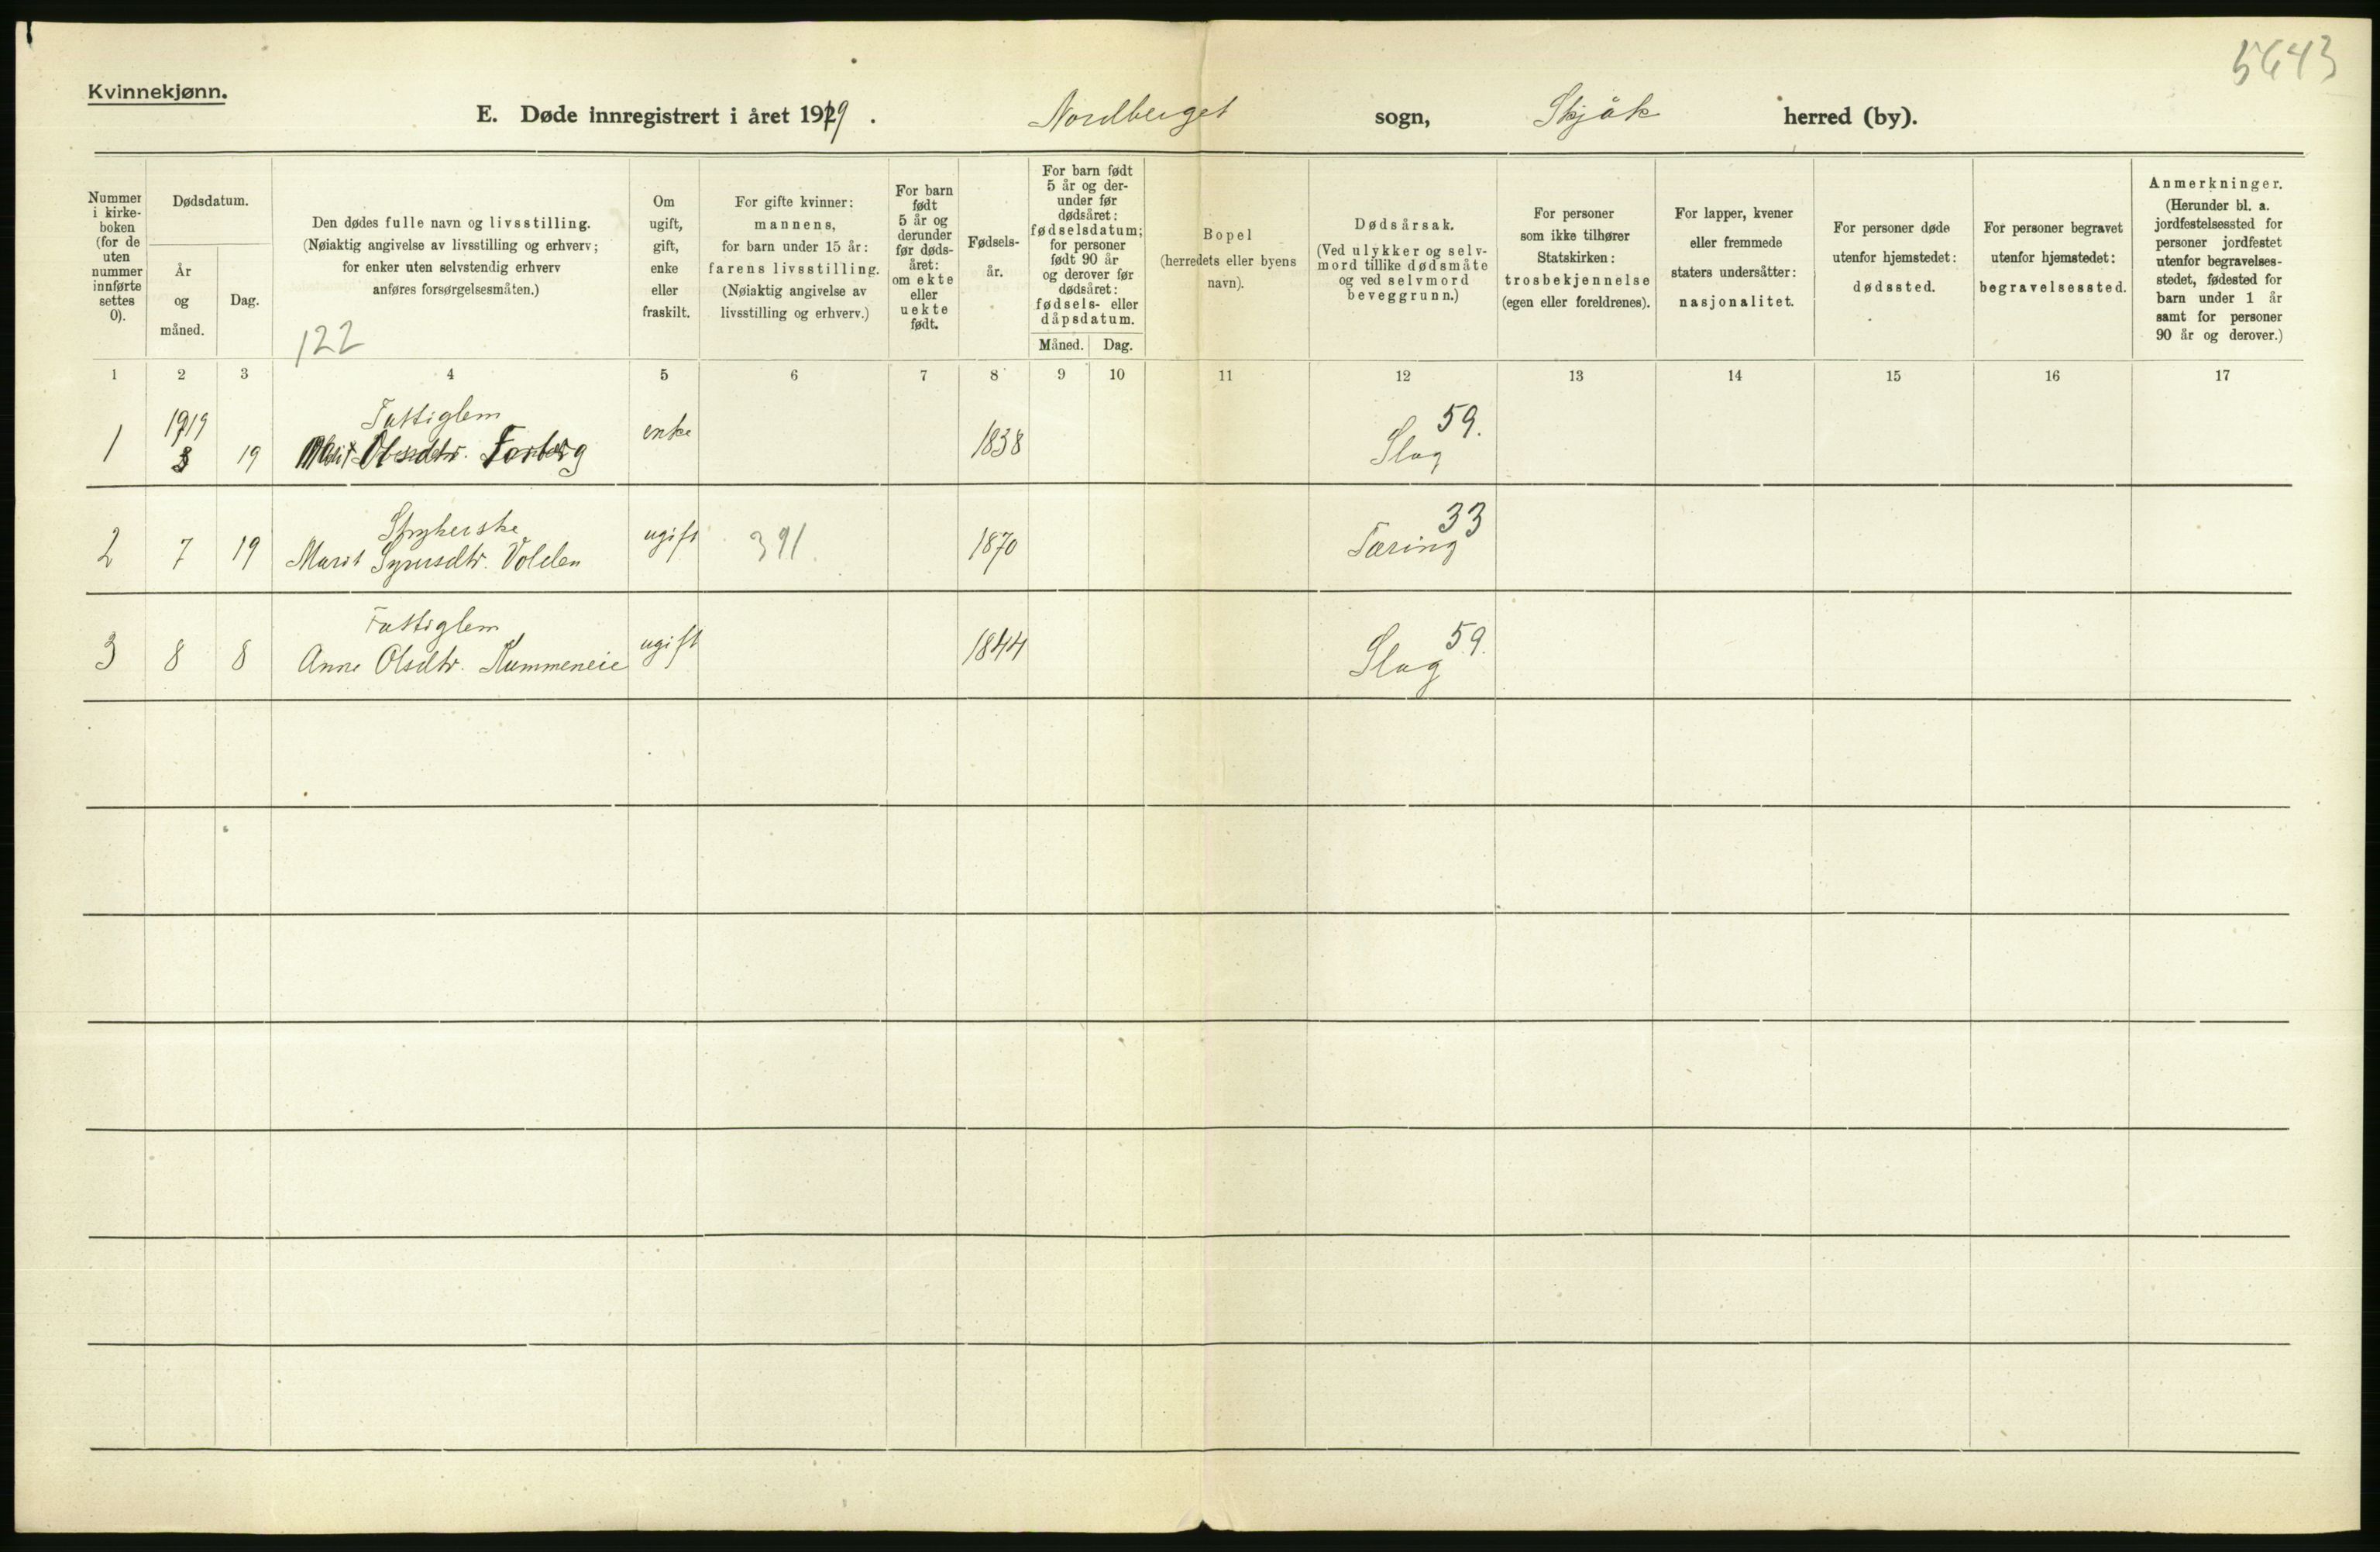 5643
Kvinnekjønn.
E. Døde innregistrert i året 1919. Nordberget sogn, Skjåk herred (by).
Nummer
i kirke-
boken
(for de
uten
nummer
innførte
settes
0).
Dødsdatum.
År
og
måned.
Dag.
Den dødes fulle navn og livsstilling.
(Nøiaktig angivelse av livsstilling og erhverv;
for enker uten selvstendig erhverv
anføres forsørgelsesmåten.)
122
Om
ugift,
gift,
enke
eller
fraskilt.
For gifte kvinner:
mannens,
for barn under 15 år:
farens livsstilling.
(Nøiaktig angivelse av
livsstilling og erhverv.)
For barn
født
5 år og
derunder
før døds-
året:
om ekte
eller
uekte
født.
Fødsels-
år.
For barn født
5 år og der-
under før
dødsåret:
fødselsdatum;
for personer
født 90 år
og derover før
dødsåret:
fødsels- eller
dåpsdatum.
Måned. Dag.
Bopel
(herredets eller byens
navn).
Dødsårsak.
(Ved ulykker og selv-
mord tillike dødsmåte
og ved selvmord
beveggrunn.)
For personer
som ikke tilhører
Statskirken:
trosbekjennelse
(egen eller foreldrenes).
For lapper, kvener
eller fremmede
staters undersåtter:
nasjonalitet.
For personer døde
utenfor hjemstedet:
dødssted.
For personer begravet
utenfor hjemstedet:
begravelsessted.
Anmerkninger.
(Herunder bl. a.
jordfestelsessted for
personer jordfestet
utenfor begravelses-
stedet, fødested for
barn under 1 år
samt for personer
90 år og derover.)
1 2 3 4 5 6 7 8 9 10 11 12 13 14 15 16 17
1919 Fattiglem 59.
1 3 19 Olsdtr. Forberg enke 1838 Slag
Spykerske 33
2 7 19 Marit Syversdtr. Volden ugift 391. 1870 Tæring
Fattiglem 59.
3 8 8 Anne Olsdtr. ugift 1844 Slag